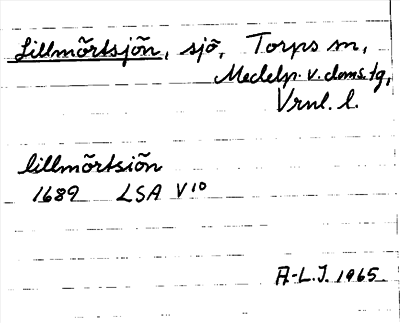 Lillmörtsjön, sjö, Torps sn,
Medelp. v. doms.tg,
Vrnl. l.
lillmörtsiön
1689 LSA V10
A-L.J. 1965